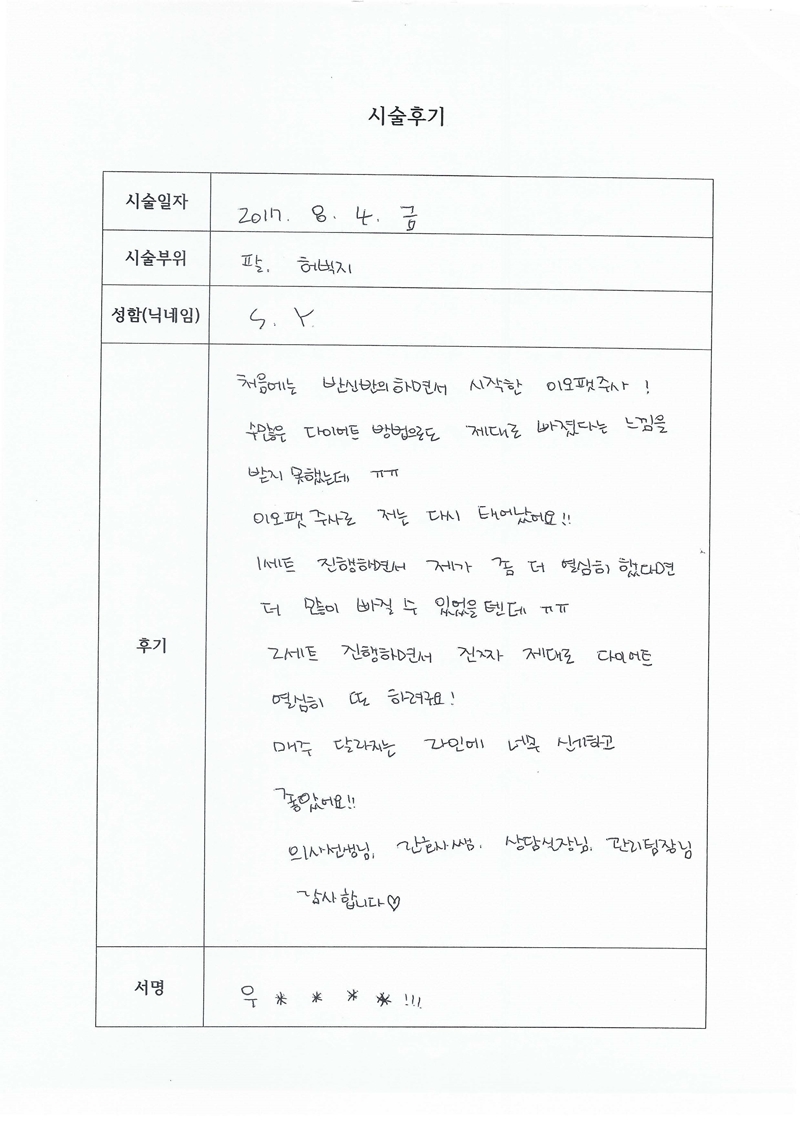 시술후기
시술일자 2017. 8. 4. 금
시술부위 팔, 허벅지
성함(닉네임) S. Y.
처음에는 반신반의하면서 시작한 이오팻주사!
수많은 다이어트 방법으로도 제대로 빠졌다는 느낌을
받지 못했는데 ㅠㅠ
이오팻 주사로 저는 다시 태어났어요!!
1세트 진행하면서 제가 좀 더 열심히 했다면
더 많이 빠질 수 있었을텐데 ㅠㅠ
2세트 진행하면서 진짜 제대로 다이어트
후기
열심히 또 하려구요!
매주 달라지는 라인에 너무 신기하고
좋았어요!!
의사선생님, 간호사쌤, 상담실장님, 관리팀장님
감사합니다♡
서명 우 * * * * !!!